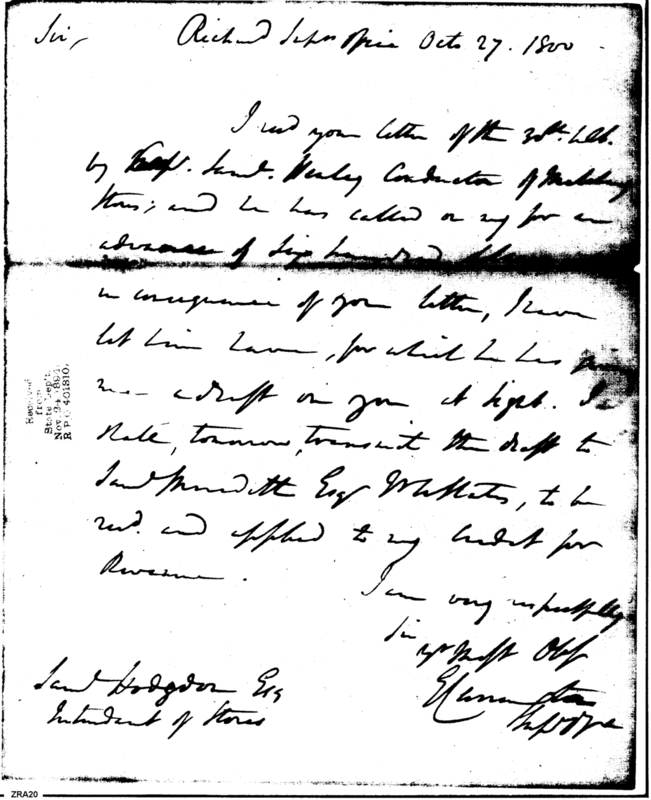 Sir, Richmd Supvrs Office Octo 27. 1800
I recd your letter of the 30th
by Saml. Conductor of Military
Stores; and he has called on my for an
advance of Six hundred
in consequence of your letter, I have
let him have, for which he has
me a draft on you at sight. I
shall, tomorrow, transmit the draft to
Saml Meredith Esqr , to be
recd. and applied to my Credit for
Revenue.
I am very respectfully
Sir
yr Most Obt
E Carrington
Saml Hodgdon Esq
Intendant of Stores
Received
from
State Dep't
Nov. 24, 1894.
R.P.O 401810.
ZRA20